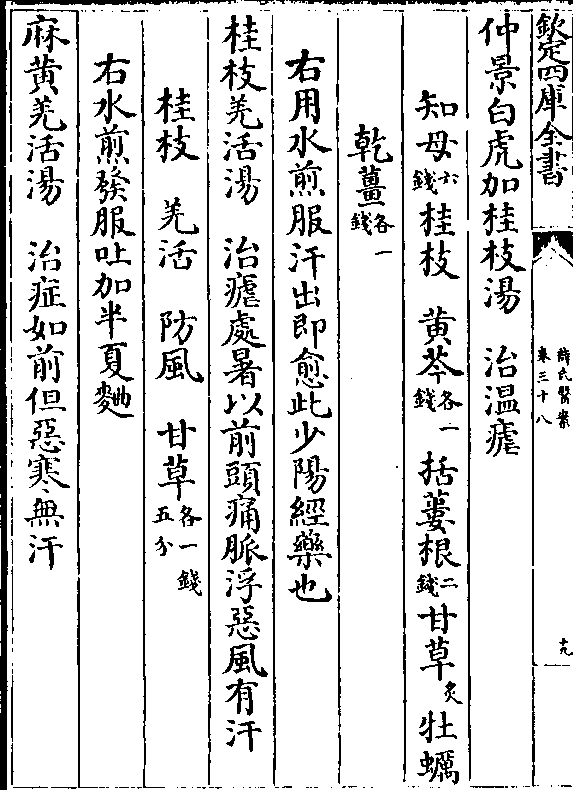 欽定四庫全書
薛氏醫案
卷三十八
十九
仲景白虎加桂枝湯　治温瘧
知母六錢桂枝　黄芩各一錢　括蔞根二錢甘草炙　牡蠣
乾薑各一錢
右用水煎服汗出即愈此少陽經藥也
桂枝羌活湯　治瘧處暑以前頭痛脈浮惡風有汗
桂枝　羌活　防風　甘草各一錢五分
右水煎發服吐加半夏麯
麻黄羌活湯　治症如前但惡寒無汗